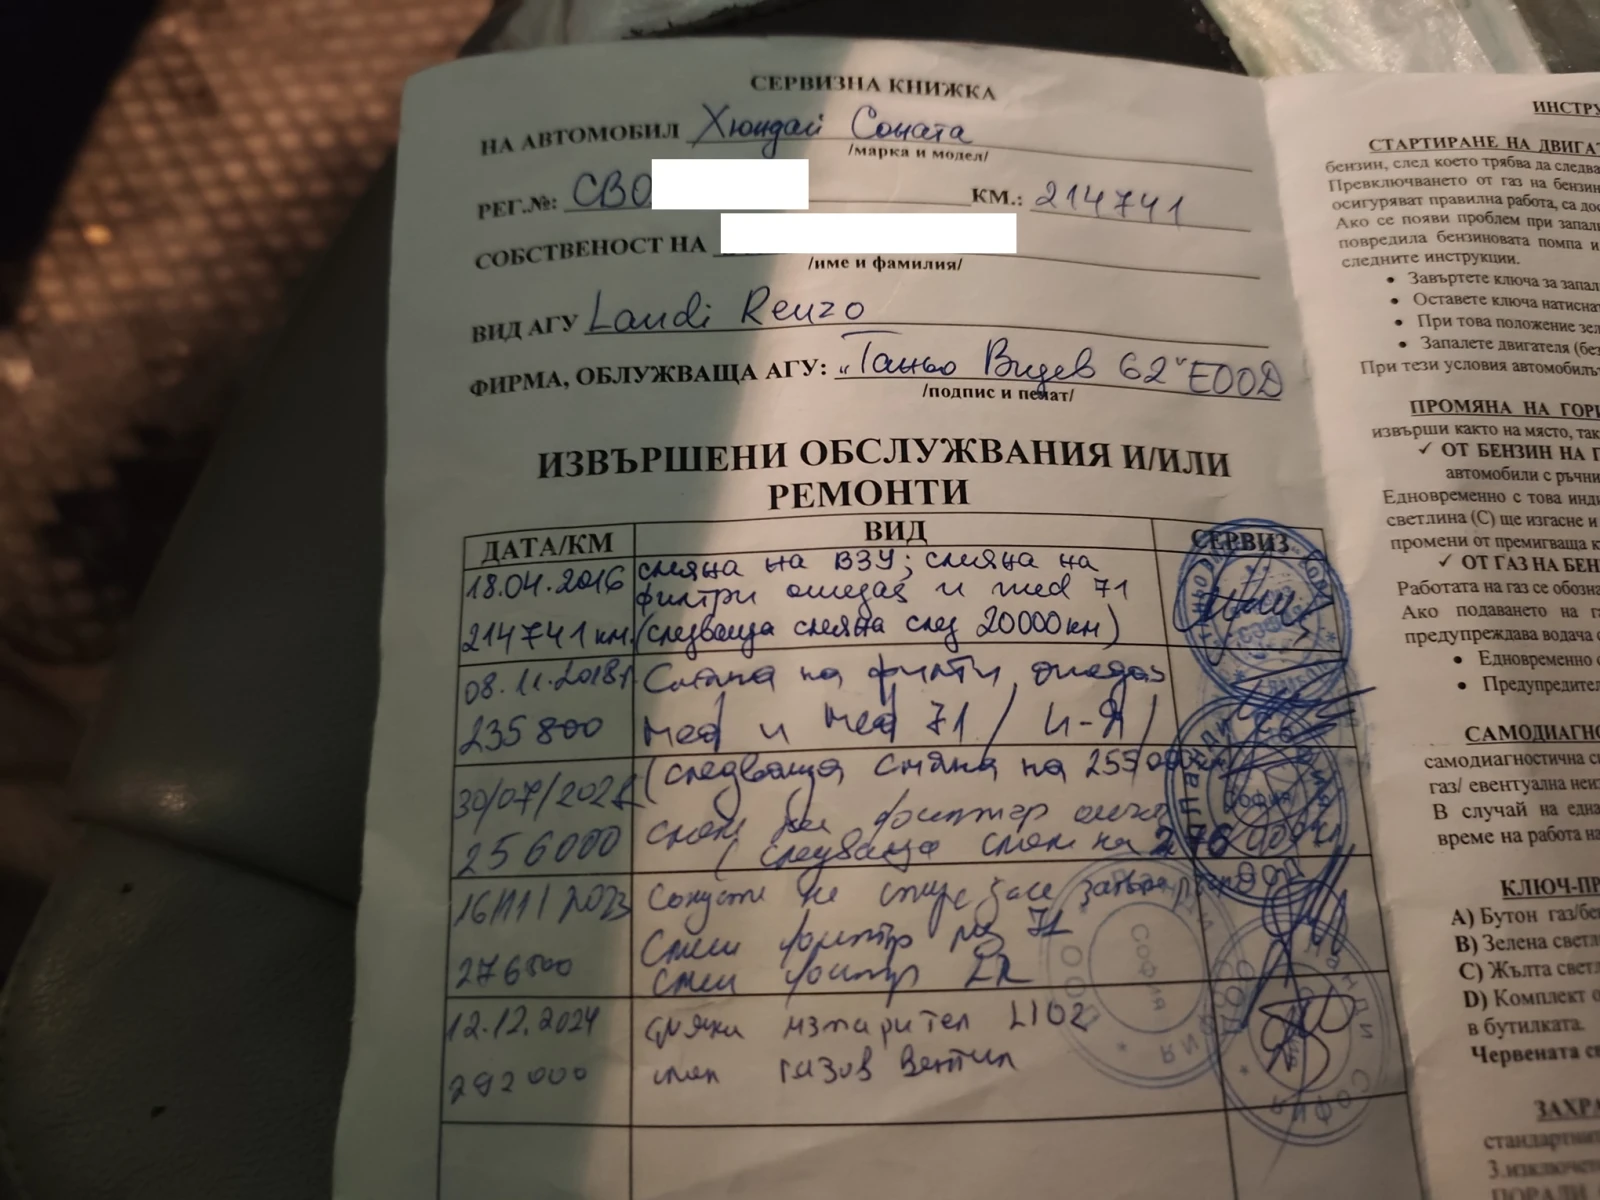 СЕРВИЗНА КНИЖКА
НА АВТОМОБИЛ Хюндай Соната
/марка и модел/
РЕГ.№: СВ0 КМ.: 214741
СОБСТВЕНОСТ НА
/име и фамилия/
ВИД АГУ Landi Renzo
ФИРМА, ОБЛУЖВАЩА АГУ: „Таньо Видев 62" ЕООД
/подпис и печат/
ИЗВЪРШЕНИ ОБСЛУЖВАНИЯ И/ИЛИ
РЕМОНТИ
ДАТА/КМ ВИД СЕРВИЗ
18.04.2016 смяна на ВЗУ; смяна на
филтри омегас и med 71
214741 км. (следваща смяна след 20000 км)
08.11.2018г Смяна на филти омегас
235800 мед и мед 71 / И-Я /
(следваща смяна на 255
30/07/202
256000 филтър
(следваща смян на 276
16/11/2023 не
Смен филтър мед 71
276500 Смен филтър
12.12.2024 смяна изпарител LI02
292000 смян газов вентил
ИНСТРУ
СТАРТИРАНЕ НА ДВИГАТ
бензин, след което трябва да следва
Превключването от газ на бензин
осигуряват правилна работа, са дос
Ако се появи проблем при запали
повредила бензиновата помпа и
следните инструкции.
• Завъртете ключа за запал
• Оставете ключа натиснат
• При това положение зел
• Запалете двигателя (без
При тези условия автомобилът
ПРОМЯНА НА ГОРИ
извърши както на място, так
✓ ОТ БЕНЗИН НА Г
автомобили с ръчни
Едновременно с това инди
светлина (С) ще изгасне и
промени от премигваща к
✓ ОТ ГАЗ НА БЕН
Работата на газ се обозна
Ако подаването на га
предупреждава водача с
• Едновременно с
• Предупредител
САМОДИАГНО
самодиагностична си
газ/ евентуална неиз
В случай на една
време на работа на
КЛЮЧ-ПР
A) Бутон газ/бен
B) Зелена светл
C) Жълта светл
D) Комплект о
в бутилката.
Червената св
ЗАХРА
стандартнит
3.изключен